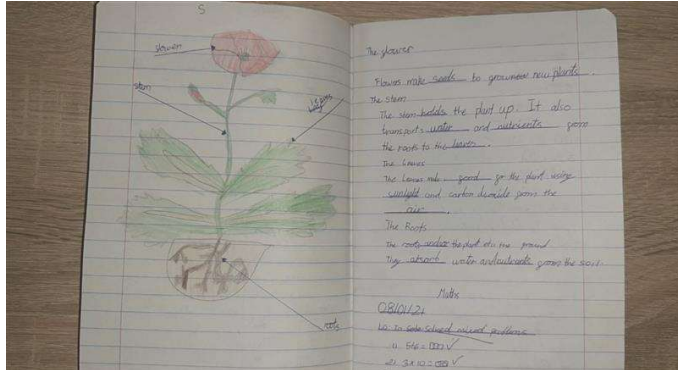 5
flower
stem
leaves
roots
The flower
Flowers make seeds to grow new plants.
The stem
The stem holds the plant up. It also
transports water and nutrients from
the roots to the leaves.
The leaves
The leaves make food for the plant using
sunlight and carbon dioxide from the
air.
The Roots
The roots anchor the plant into the ground
They absorb water and nutrients from the soil.
Maths
08/01/21
LO: To solve mixed problems
2) 3x10=